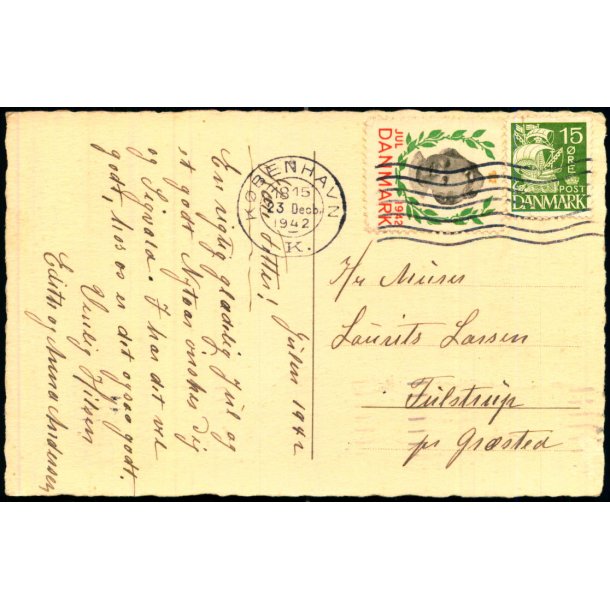 JUL
DANMARK
1942
15
ØRE
POST
DANMARK
KØBENHAVN
18 15
23 Decb.
1942
K.
Julen 1942
En rigtig glædelig Jul og
et godt Nytaar ønskes dig
og Sigvald. I har det vel
godt, hos os er det ogsaa godt.
Venlig Hilsen
Edith og Anna Andersen
Hr Murer
Laurits Larsen
Fulstrup
pr Græsted